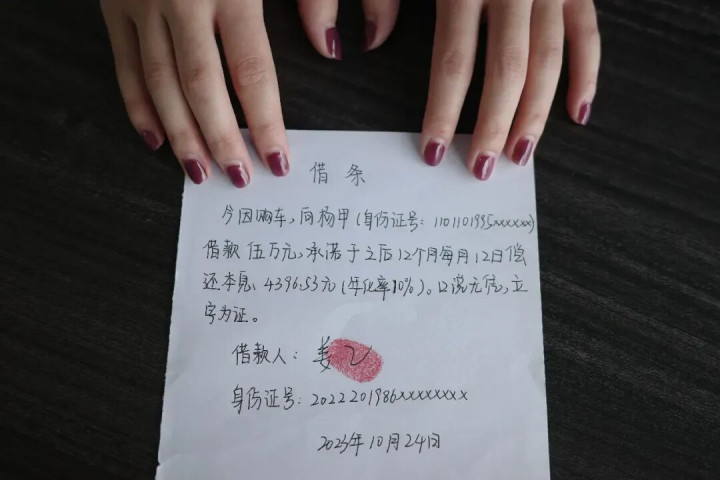 借条
今因购车，向杨甲（身份证号：1101101995xxxxxx）
借款伍万元，承诺于之后12个月每月12日偿
还本息4396.53元（年化率10%）。口说无凭，立
字为证。
借款人：姜乙
身份证号：2022201986xxxxxxxx
2023年10月24日